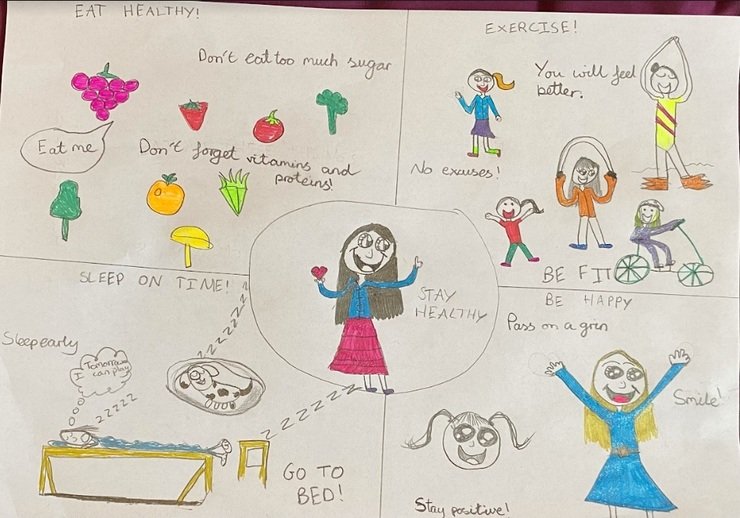 EAT HEALTHY!
Don't eat too much sugar
Eat me
Don't forget vitamins and
proteins!
EXERCISE!
You will feel
better.
No excuses!
BE FIT
STAY
HEALTHY
SLEEP ON TIME!
Sleep early
Tomorrow
I can play
zzzzz
zzzzzzz
zzzzzzz
GO TO
BED!
BE HAPPY
Pass on a grin
Smile!
Stay positive!